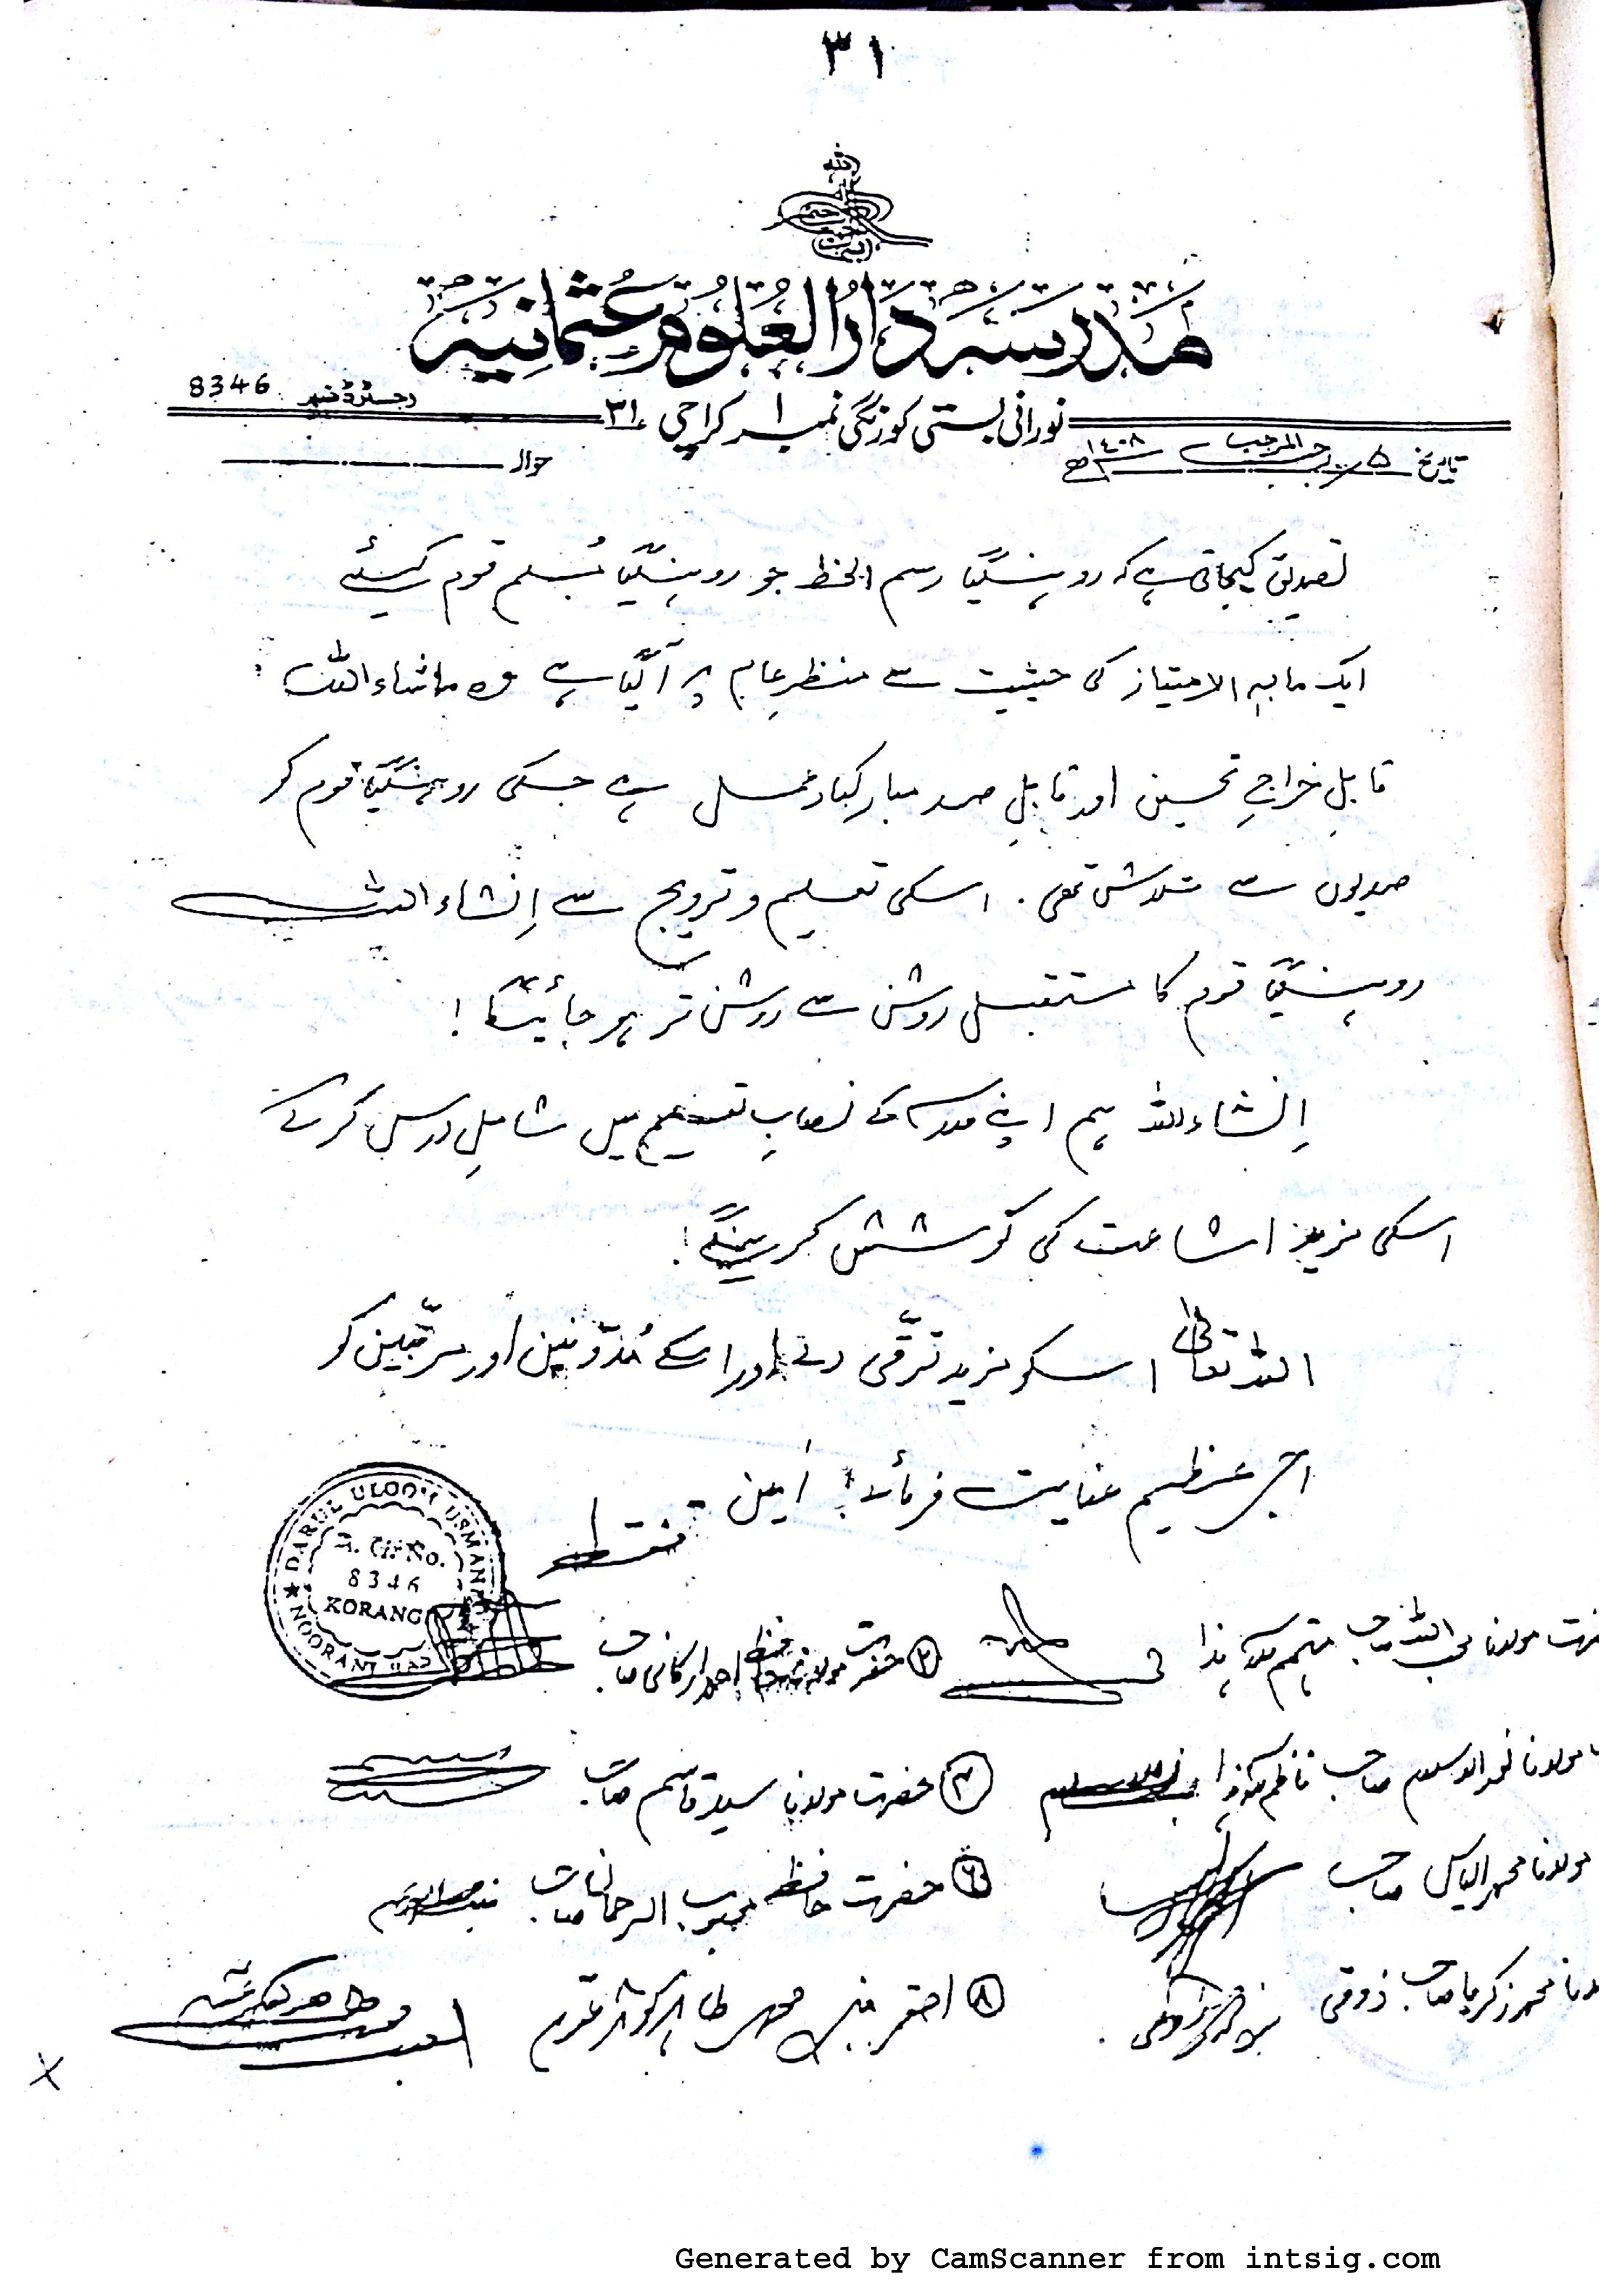 ٣١
مدرسہ دار العلوم عثمانیہ
رجسٹرڈ نمبر 8346
نورانی بستی کورنگی نمبر ١ کراچی ٣١
تاریخ ٥ رجب المرجب ١٤٠٨ھ
حوالہ
تصدیق کیجاتی ہے کہ روہنگیا رسم الخط جو روہنگیا مُسلم قوم کیلئے
ایک مابہ الامتیاز کی حیثیت سے منظرِ عام پر آگیا ہے وہ ماشاء اللہ
قابلِ خراجِ تحسین اور قابلِ صد مبارکباد عمل ہے جسکی روہنگیا قوم کو
صدیوں سے تلاش تھی. اسکی تعلیم و ترویج سے اِنشاء اللہ
روہنگیا قوم کا مستقبل روشن سے روشن تر ہو جائیگا!
اِنشاء اللہ ہم اپنے مدرسہ کے نصابِ تعلیم میں شاملِ درس کر کے
اسکی مزید اشاعت کی کوشش کرینگے!
اللہ تعالیٰ اسکو مزید ترقّی دے اور اسکے مُدوّنین اور مرتّبین کو
اجرِ عظیم عنایت فرمائے! آمین فقط
DARUL ULOOM USMANIA
NOORANI
No.
8346
KORANGI
مولانا محب اللہ صاحب مہتمم مدرسہ ہذا
٢ حضرت مولانا حافظ احمد ارکانی صاحب
مولانا نور السلام صاحب ناظم مدرسہ ہذا
٤ حضرت مولانا سید قاسم صاحب
مولانا محمد الیاس صاحب
٦ حضرت حافظ محبوب الرحمان صاحب
محمد زکریا صاحب ذوقی
٨ احقر محمد طاہر
Generated by CamScanner from intsig.com